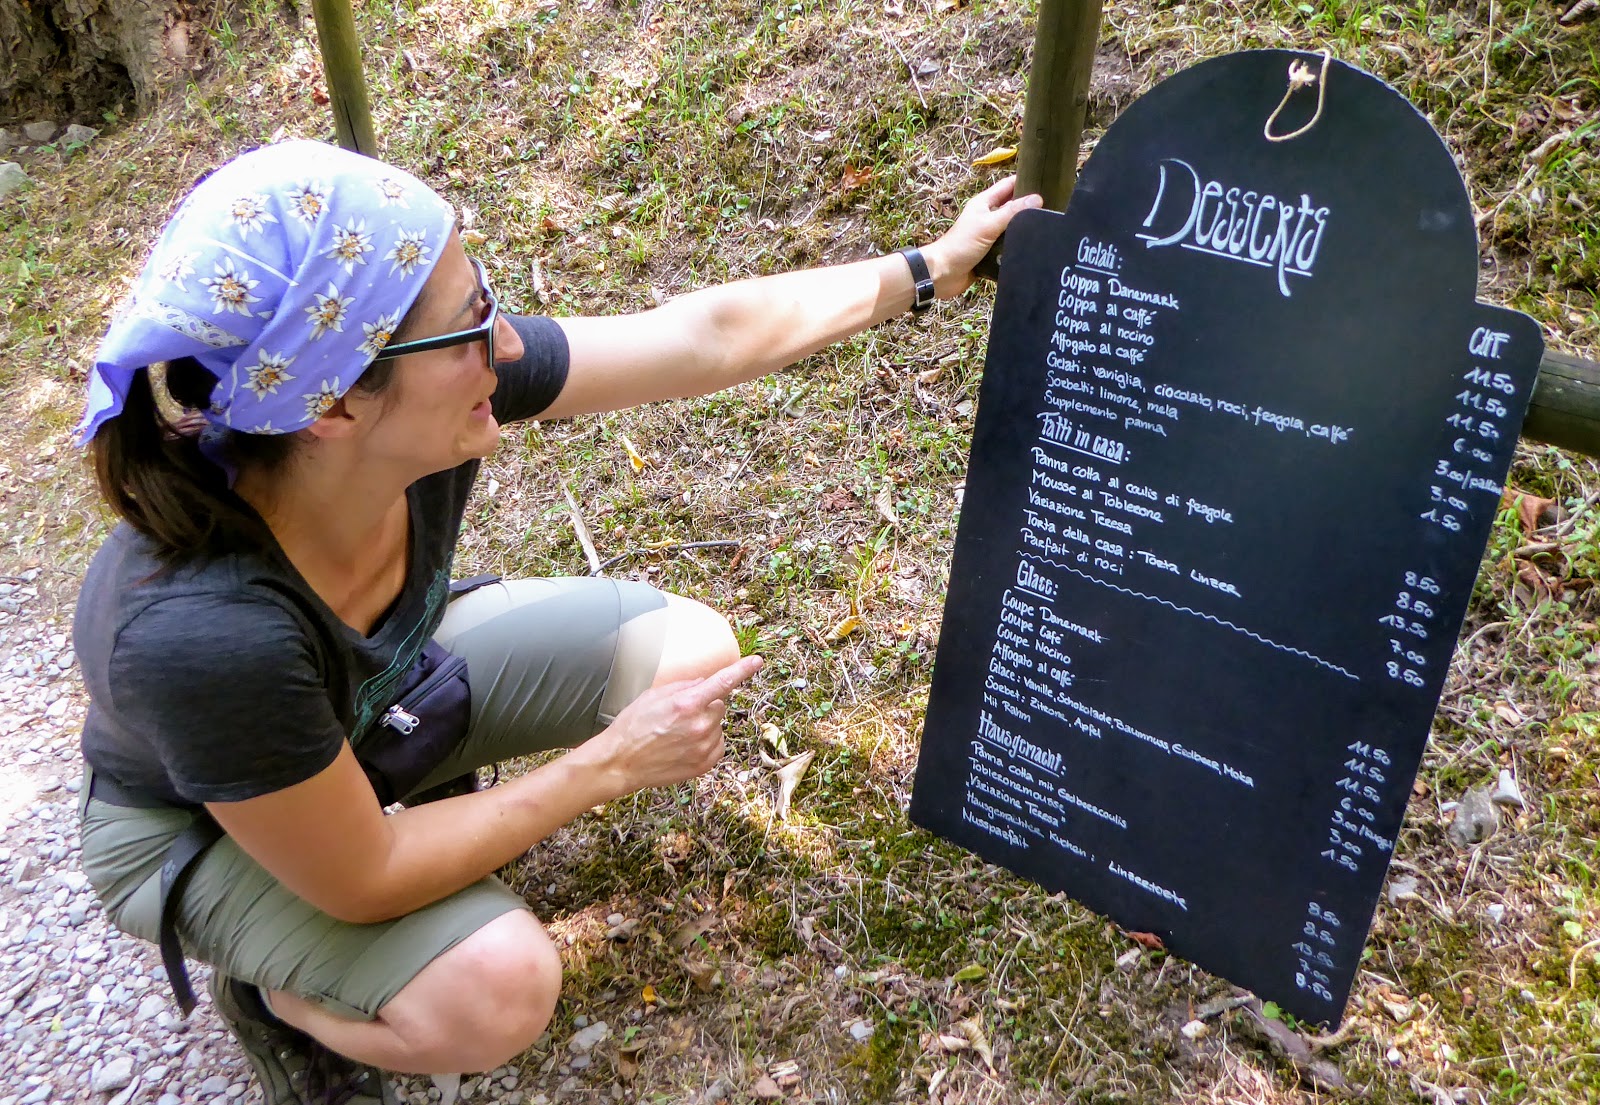 Desserts
CHF.
Gelati:
Coppa Danemark 11.50
Coppa al caffé 11.50
Coppa al nocino 11.50
Affogato al caffé 6.00
Gelati: vaniglia, cioccolato, noci, fragola, caffé 3.00/pallina
Sorbetti: limone, mela 3.00
Supplemento panna 1.50
Fatti in casa:
Panna cotta al coulis di fragole 8.50
Mousse al Toblerone 8.50
Variazione Teresa 13.50
Torta della casa: Torta Linzer 7.00
Parfait di noci 8.50
Glace:
Coupe Danemark 11.50
Coupe Café 11.50
Coupe Nocino 11.50
Affogato al caffé 6.00
Glace: Vanille, Schokolade, Baumnuss, Erdbeer, Moka 3.00/Kugel
Sorbet: Zitrone, Apfel 3.00
Mit Rahm 1.50
Hausgemacht:
Panna cotta mit Erdbeercoulis 8.50
Tobleronemousse 8.50
„Variazione Teresa" 13.50
Hausgemachter Kuchen: Linzertorte 7.00
Nussparfait 8.50